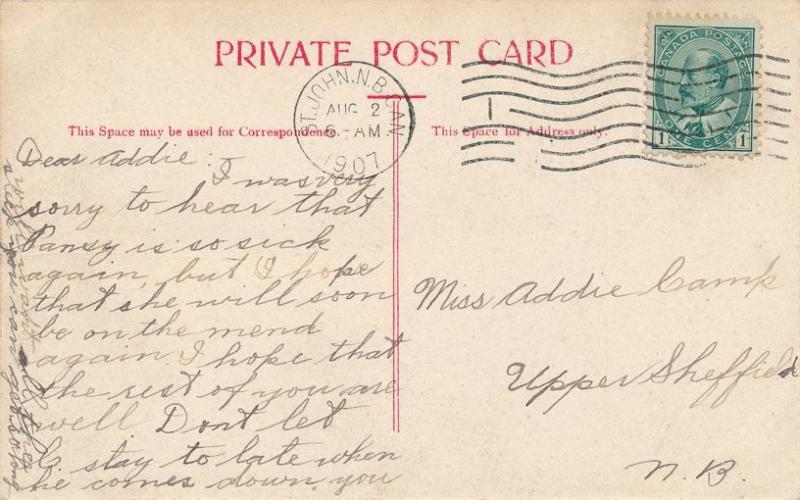 PRIVATE POST CARD
ST. JOHN, N.B. CAN.
AUG 2
6 - AM
1907
CANADA POSTAGE
ONE CENT
1 1
This Space may be used for Correspondence.
This Space for Address only.
Dear Addie:
I was very
sorry to hear that
Pansy is so sick
again, but I hope
that she will soon
be on the mend
again. I hope that
the rest of you are
well Dont let
C. stay to late when
he comes down. you
will
all the
sleep you can get. So long
Miss Addie Camp
Upper Sheffield
N.B.